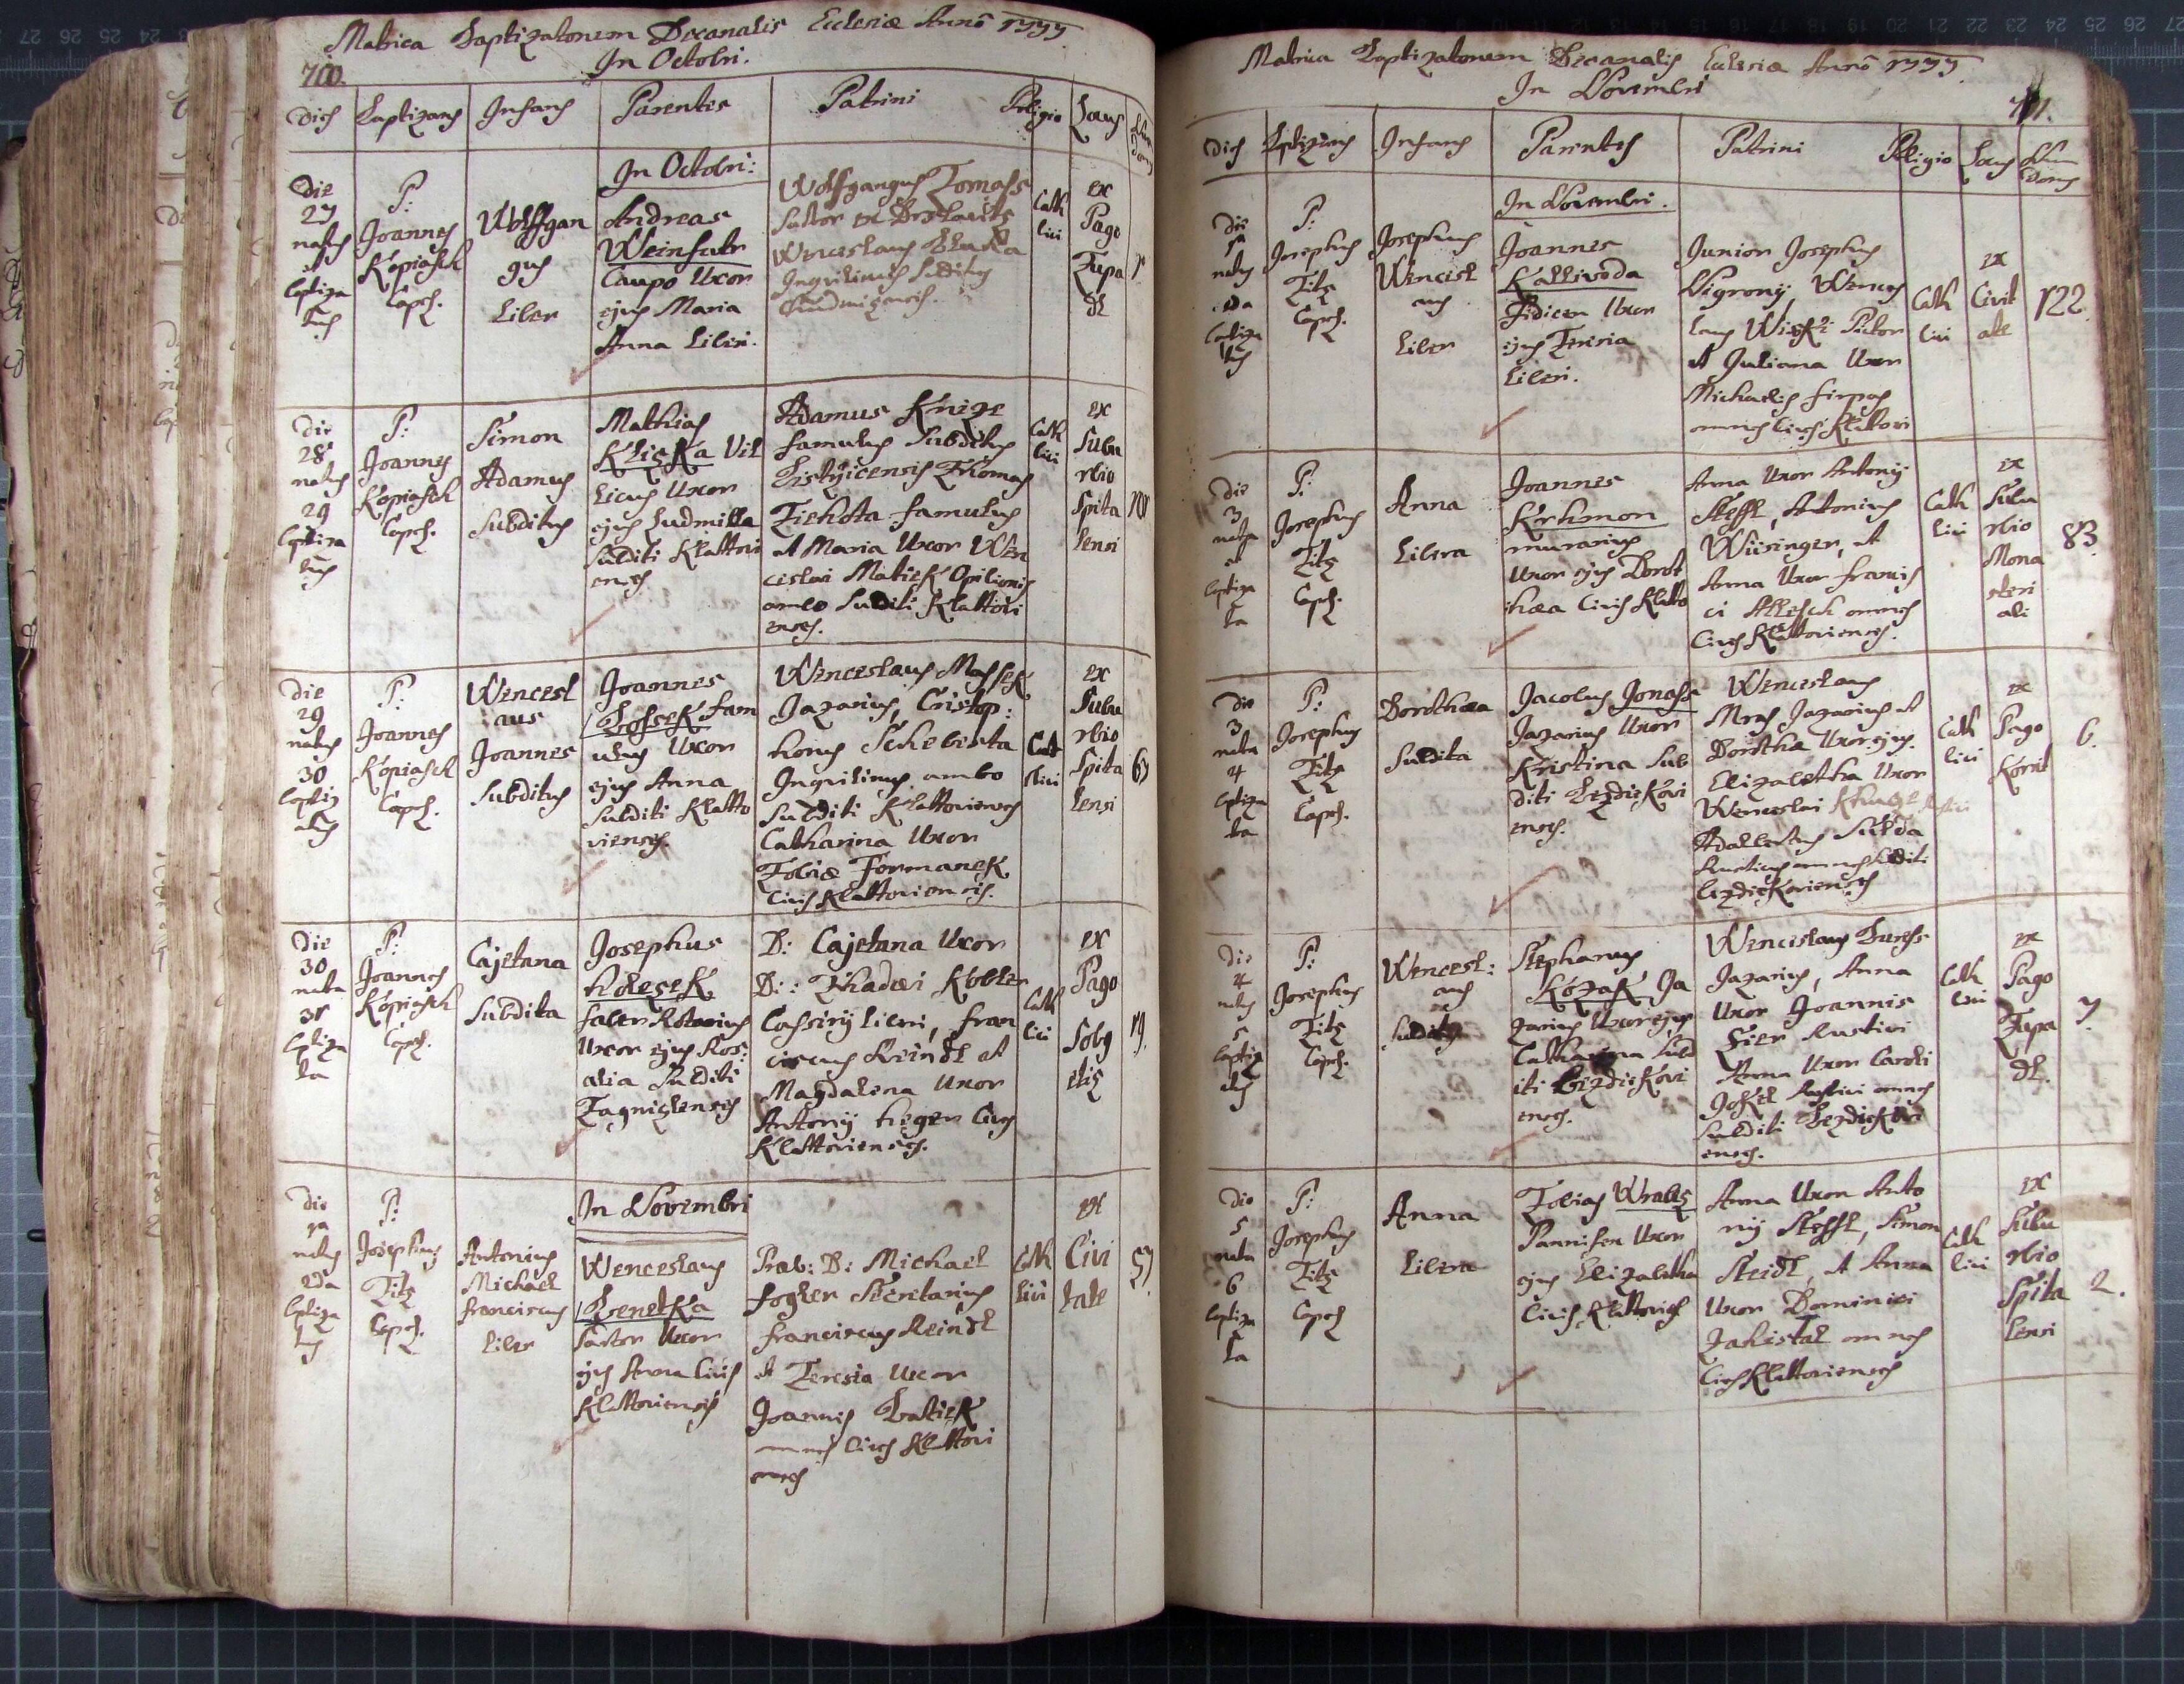 Matrica Baptizatorum Decanalis Ecclesiæ Annô 1777
700.
In Octobri.
Dies Baptizans Infans Parentes Patrini Religio Locus
In Octobri:
Die
27
natus
et
baptiza
tus
P:
Joannes
Kopiasch
Capel.
Wolffgan
gus
Liber
Andreas
Weinfurtr
Caupo Uxor
ejus Maria
Anna Liberi.
Wolffgangus Tomass
Sutor ex
Wenceslaus
Inquilinus Subditus
Catho
lici
ex
Pago
Tupa
dl
1
Die
28
natus
29
baptiza
tus
P:
Joannes
Kopiasch
Capel.
Simon
Adamus
Subditus
Mathias
Kliçka Vil
licus Uxor
ejus Ludmilla
Subditi Klattovi
enses
Adamus Knize
famulus Subditus
Bistÿicensis Thomas
Tichota famulus
et Maria Uxor Wen
ceslai Matiek Opilionis
ambo Subditi Klattovi
enses.
Cath
lici
ex
Subu
rbio
Spita
lensi
101
Die
29
natus
30
baptiz
atus
P:
Joannes
Kopiasch
Capel.
Wencesl
aus
Joannes
Subditus
Joannes
fam
ulus Uxor
ejus Anna
Subditi Klatto
vienses.
Wenceslaus Massek
Jazarius, Cristop:
horus Scheberta
Inquilinus ambo
Subditi Klattovienses
Catharina Uxor
Tobiæ Formanek
Civis Klattoviensis.
Cat
olici
ex
Subu
rbio
Spita
lensi
67
Die
30
nata
31
baptiza
ta
P:
Joannes
Kopiasch
Capel.
Cajetana
Subdita
Josephus
holeçek
faber Rotarius
Uxor ejus Ros:
alia Subditi
D: Cajetana Uxor
D: Thadæi Kobler
Cassirij Liberi, fran
ciscus Reindl et
Magdalena Uxor
Antonij heger Cives
Klattovienses.
Cath
lici
ex
Pago
Sobÿ
19.
In Novembri
Die
1a
natus
2da
baptiza
tus
P:
Josephus
Titz
Capel.
Antonius
Michael
franciscus
Liber
Wenceslaus
Benetka
Sartor Uxor
ejus Anna Cives
Klattoviensis
Præb: D: Michael
fogler Secretarius
franciscus Reindl
et Teresia Uxor
Joannis
omnes Cives Klattovi
enses
Cath
lici
ex
Civi
tate
57.
Matrica Baptizatorum Decanalis Eclesiæ Annô 1777
In Novembri
701.
Dies Baptizans Infans Parentes Patrini Religio Locus Num Domus
In Novembri.
Die
1a
natus
2da
baptiza
tus
P:
Josephus
Titz
Capel.
Josephus
Wencesl
aus
Liber
Joannes
Kallivoda
Pidicen Uxor
ejus Teresia
Liberi.
Junior Josephus
Nigronij, Wences
laus
et Juliana Uxor
Michaelis
omnes Cives Klattovi
Cath
lici
ex
Civit
ate
122
Die
3
nata
et
baptiza
ta
P:
Josephus
Titz
Capel.
Anna
Libera
Joannes
Krhmon
murarius
Uxor ejus Dorot
hæa Cives Klatto
Anna Uxor Antonij
Steffl, Antonius
Wiisinger, et
Anna Uxor francis
ci omnes
Cives Klattovienses.
Cath
lici
ex
Subu
rbio
Mona
steri
ali
83.
Die
3
nata
4
baptiza
ta
P:
Josephus
Titz
Capel.
Dorothæa
Subdita
Jacobus Jonass
Jazarius Uxor
Kristina Sub
diti Bezdiekovi
enses.
Wenceslaus
Mras Jazarius et
Dorothæ Uxor ejus.
Elizabetha Uxor
Wenceslai
Adalbertus
Rusticus omnes Subditi
bezdiekovienses
Cath
lici
ex
Pago
Koryt
6.
Die
4
natus
5
baptiz
atus
P:
Josephus
Titz
Capel.
Wencesl:
aus
Subditus
Stephanus
Kozak, Ja
zarius Uxor ejus
Catharina Subd
iti Bezdiekovi
enses.
Wenceslaus Buress
Jazarius, Anna
Uxor Joannis
Fier Rustici
Anna Uxor Caroli
Jokel Rustici omnes
Subditi Bezdiekovi
enses.
Cath
lici
ex
Pago
Tupa
dl.
7.
Die
5
nata
6
baptiza
ta
P:
Josephus
Titz
Capel
Anna
Libera
Tobias Wrabetz
Pannifex Uxor
ejus Elizabetha
Cives Klattovies
Anna Uxor Anto
nij Steffl, Simon
Steidl, et Anna
Uxor Dominici
Jahistal omnes
Cives Klattovienses
Cath
lici
ex
Subu
rbio
Spita
lensi
2.